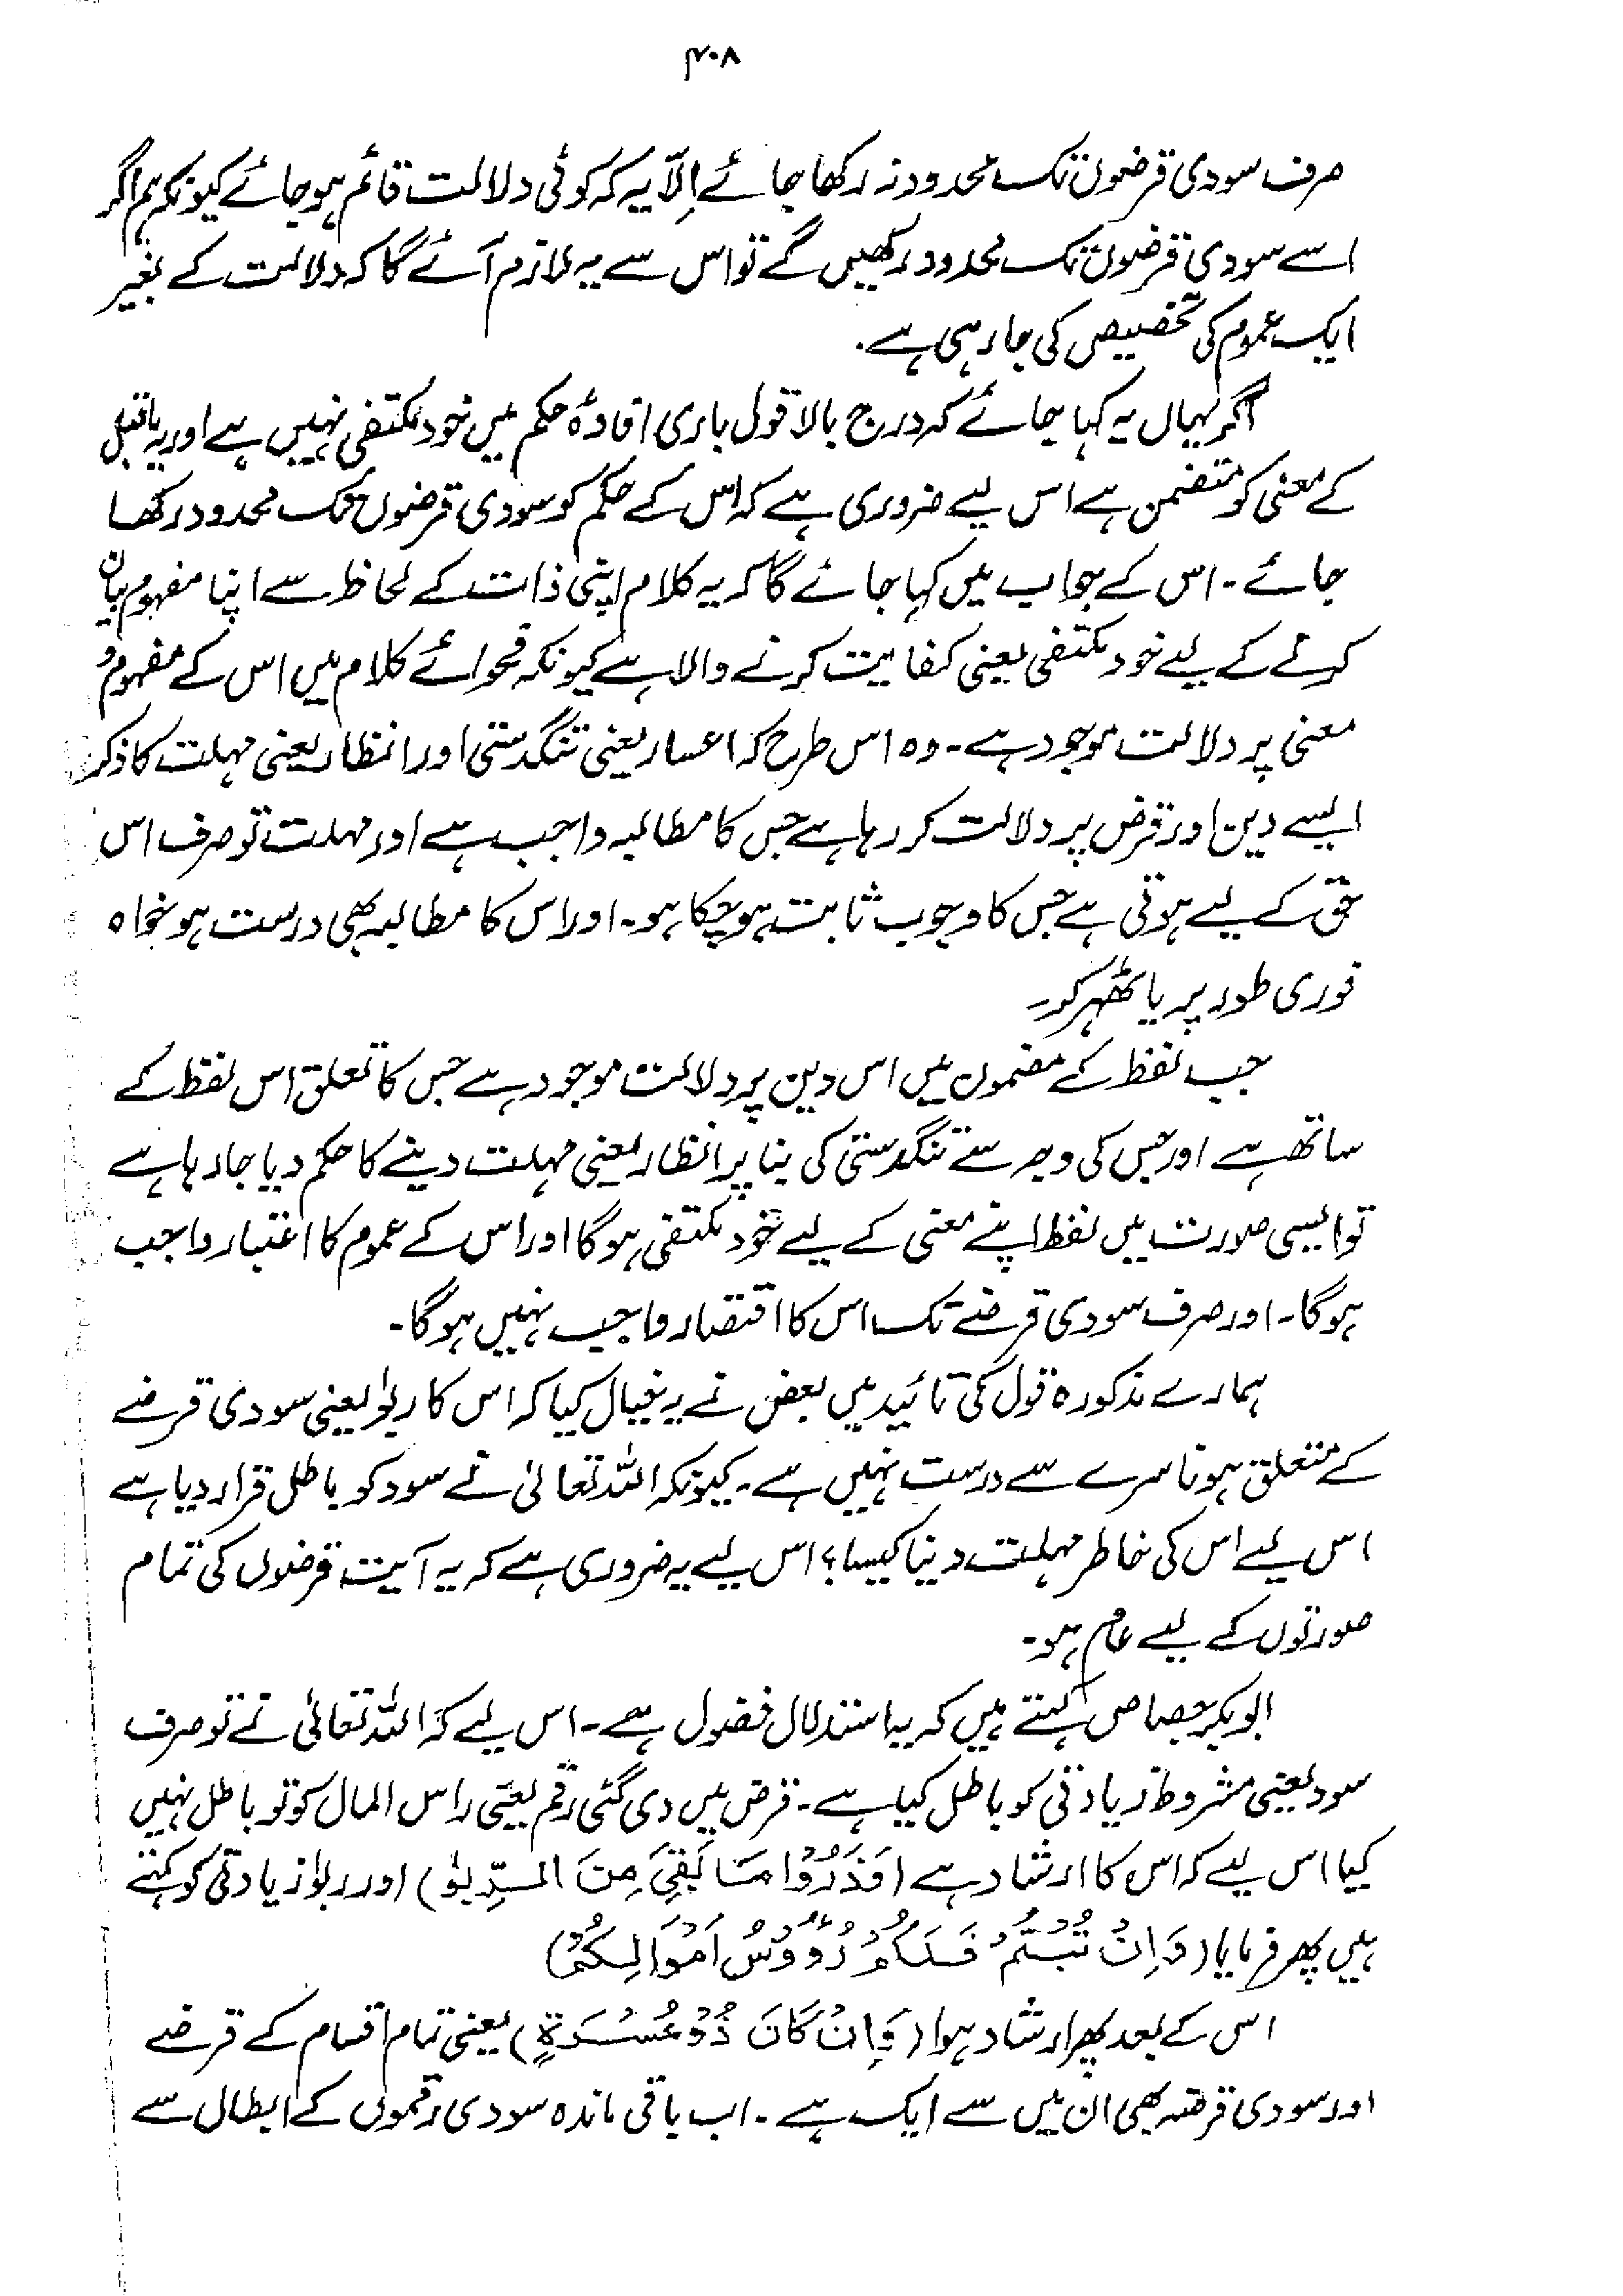 ۴۰۸
صرف سودی قرضوں تک محدود نہ رکھا جائے اِلّا یہ کہ کوئی دلالت قائم ہو جائے کیونکہ ہم اگر
اسے سودی قرضوں تک محدود رکھیں گے تو اس سے یہ لازم آئے گا کہ دلالت کے بغیر
ایک عموم کی تخصیص کی جا رہی ہے.
اگر یہاں یہ کہا جائے کہ درج بالا قول باری افادۂ حکم میں خود مکتفی نہیں ہے اور یہ ماقبل
کے معنی کو متضمن ہے اس لیے ضروری ہے کہ اس کے حکم کو سودی قرضوں تک محدود رکھا
جائے۔ اس کے جواب میں کہا جائے گا کہ یہ کلام اپنی ذات کے لحاظ سے اپنا مفہوم بیان
کرنے کے لیے خود مکتفی یعنی کفایت کرنے والا ہے کیونکہ فحوائے کلام میں اس کے مفہوم و
معنی پر دلالت موجود ہے۔ وہ اس طرح کہ اعسار یعنی تنگدستی اور انظار یعنی مہلت کا ذکر
ایسے دین اور قرض پر دلالت کر رہا ہے جس کا مطالبہ واجب ہے اور مہلت تو صرف اس
حق کے لیے ہوتی ہے جس کا وجوب ثابت ہو چکا ہو۔ اور اس کا مطالبہ بھی درست ہو خواہ
فوری طور پر یا ٹھہر کر۔
جب لفظ کے مضمون میں اس دین پر دلالت موجود ہے جس کا تعلق اس لفظ کے
ساتھ ہے اور جس کی وجہ سے تنگدستی کی بنا پر انظار یعنی مہلت دینے کا حکم دیا جا رہا ہے
تو ایسی صورت میں لفظ اپنے معنی کے لیے خود مکتفی ہو گا اور اس کے عموم کا اعتبار واجب
ہو گا۔ اور صرف سودی قرضے تک اس کا اقتصار واجب نہیں ہو گا۔
ہمارے مذکورہ قول کی تائید میں بعض نے یہ خیال کیا کہ اس کا ربوٰا یعنی سودی قرضے
کے متعلق ہونا سرے سے درست نہیں ہے۔ کیونکہ اللہ تعالیٰ نے سود کو باطل قرار دیا ہے
اس لیے اس کی خاطر مہلت دینا کیسا؟ اس لیے یہ ضروری ہے کہ یہ آیت قرضوں کی تمام
صورتوں کے لیے عام ہو۔
ابو بکر جصاص کہتے ہیں کہ یہ استدلال فضول ہے۔ اس لیے کہ اللہ تعالیٰ نے تو صرف
سود یعنی مشروط زیادتی کو باطل کیا ہے۔ قرض میں دی گئی رقم یعنی راس المال کو تو باطل نہیں
کیا اس لیے کہ اس کا ارشاد ہے (وَذَرُوْا مَا بَقِیَ مِنَ الرِّبٰوا) اور ربوٰا زیادتی کو کہتے
ہیں پھر فرمایا (وَاِنْ تُبْتُمْ فَلَکُمْ رُؤُوْسُ اَمْوَالِکُمْ)
اس کے بعد پھر ارشاد ہوا (وَاِنْ کَانَ ذُوْ عُسْرَةٍ) یعنی تمام اقسام کے قرضے
اور سودی قرضہ بھی ان میں سے ایک ہے۔ اب باقی ماندہ سودی رقموں کے ابطال سے